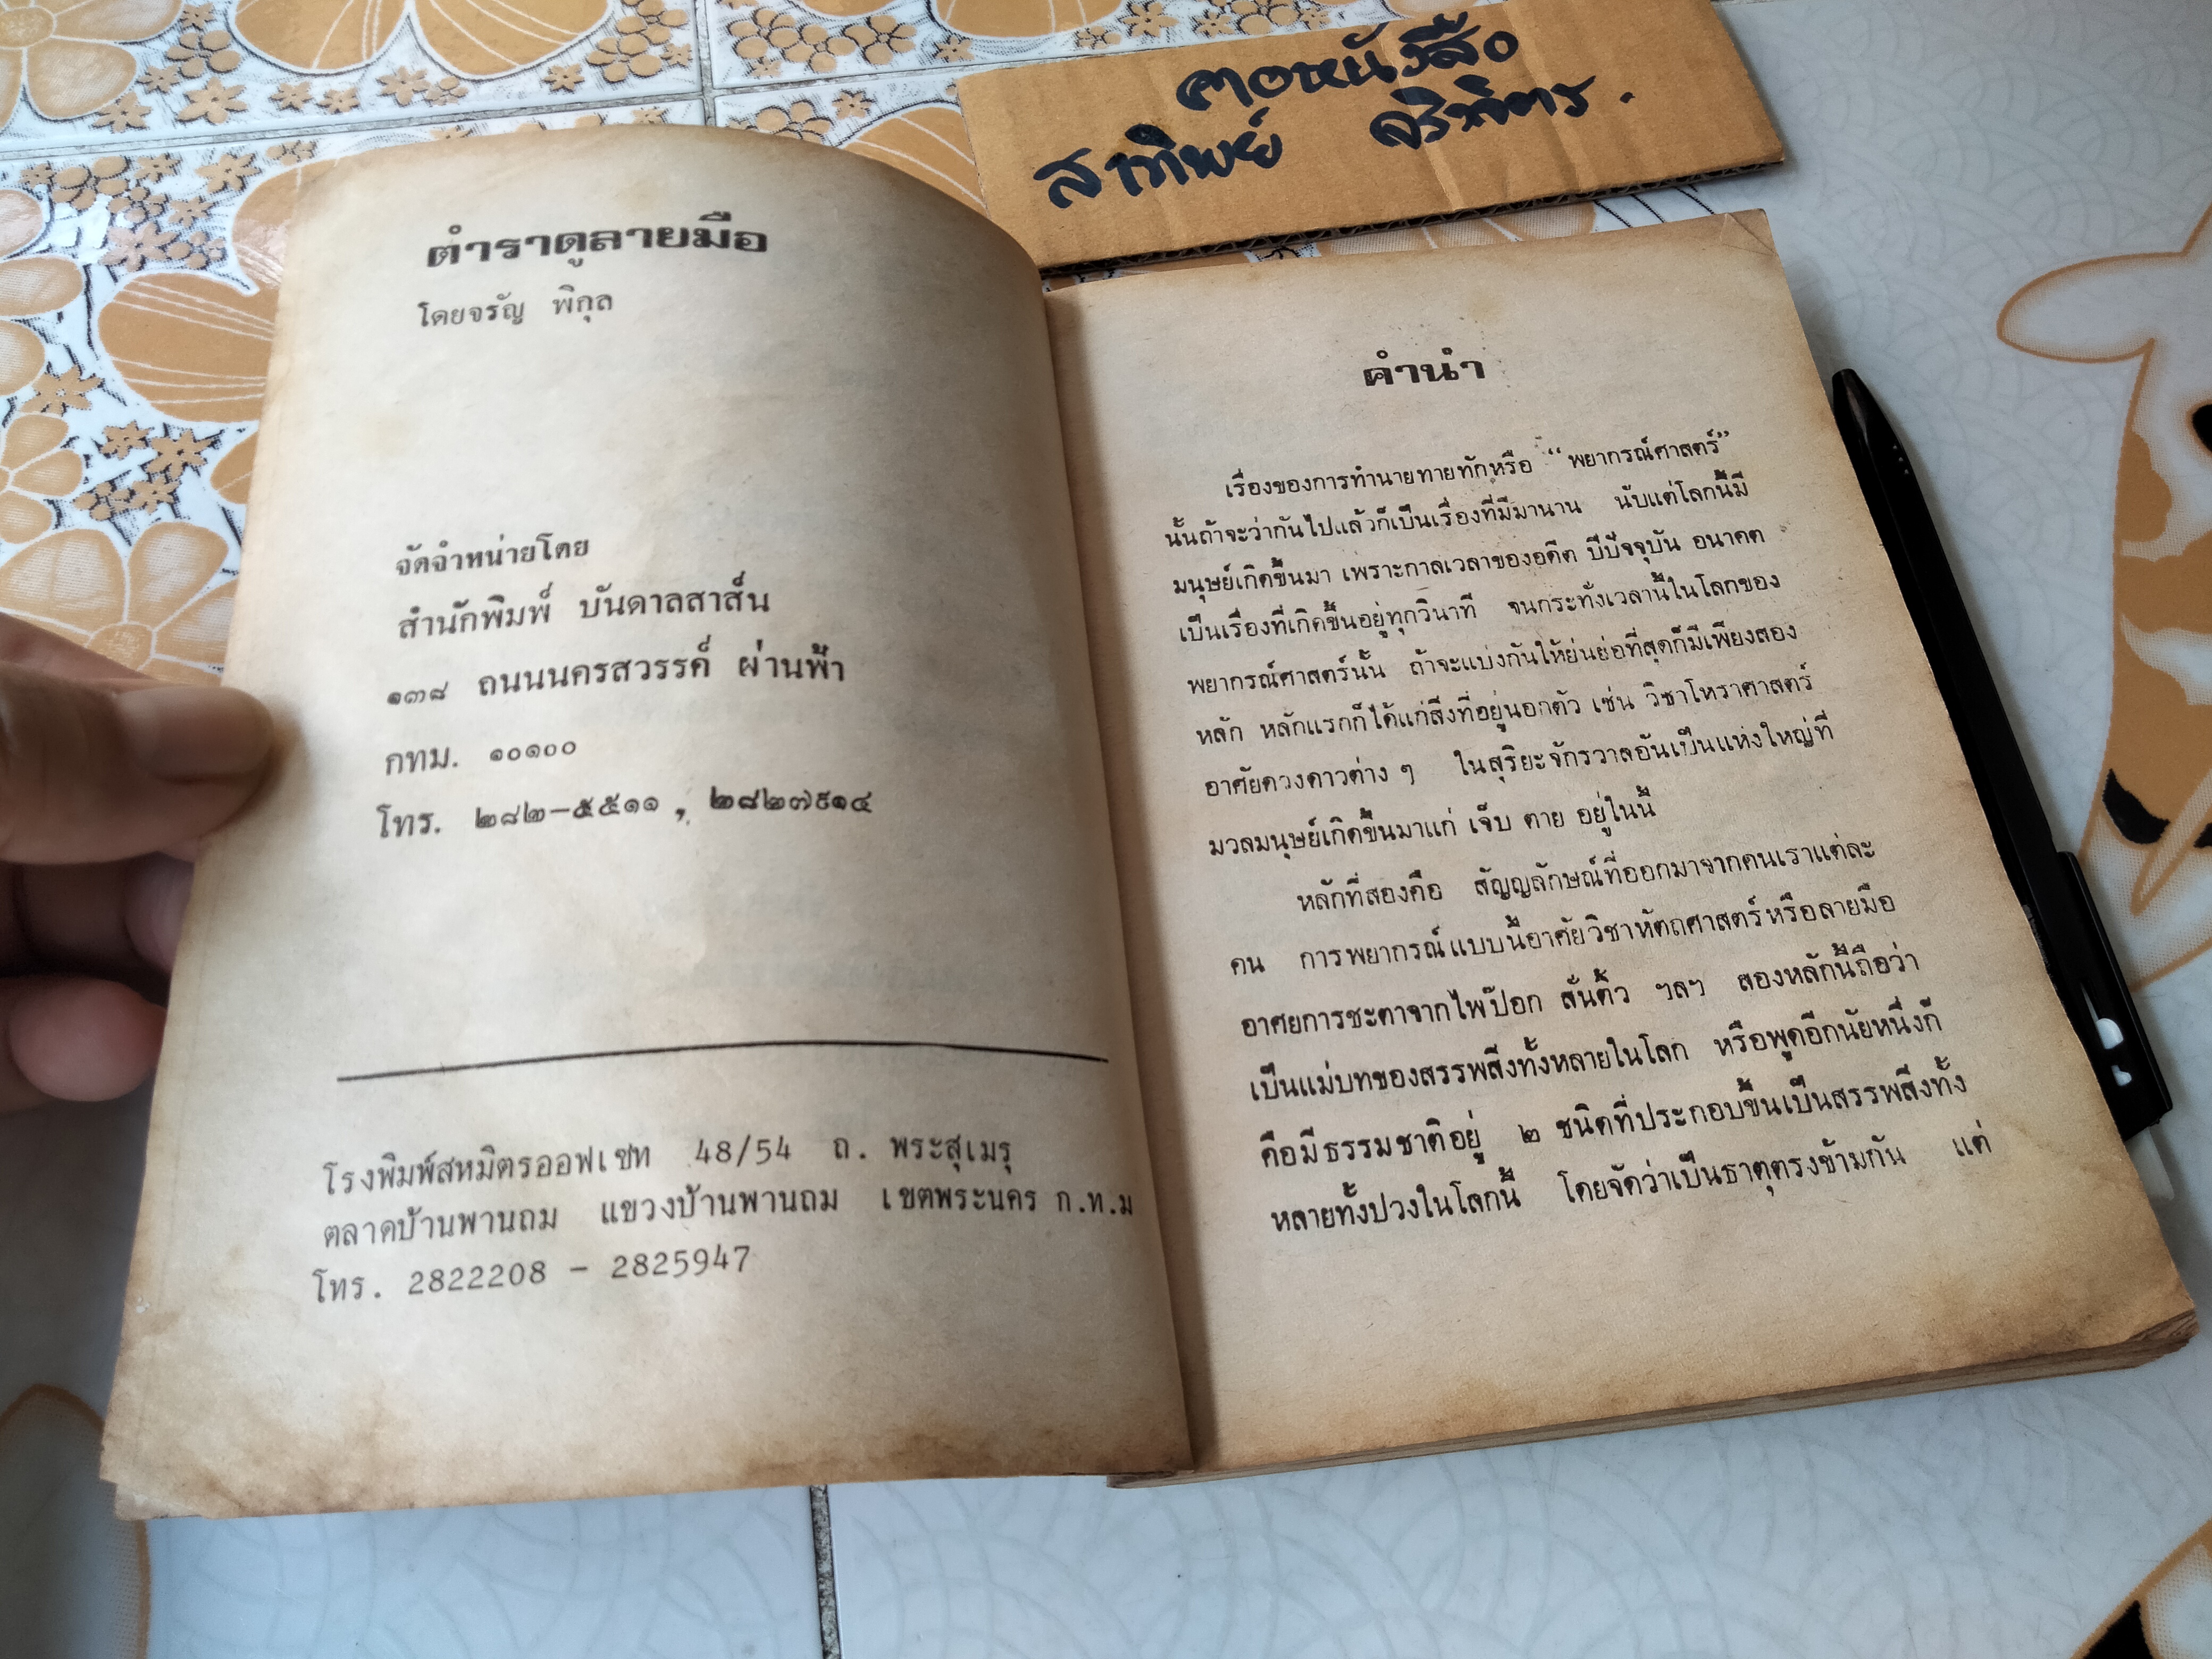 คอหนังสือ
สาทิพย์ จริพิตร.
ตำราดูลายมือ
โดยจรัญ พิกุล
จัดจำหน่ายโดย
สำนักพิมพ์ บันดาลสาส์น
๑๓๘ ถนนนครสวรรค์ ผ่านฟ้า
กทม. ๑๐๑๐๐
โทร. ๒๘๒-๕๕๑๑ , ๒๘๒๗๙๑๔
โรงพิมพ์สหมิตรออฟเซท 48/54 ถ. พระสุเมรุ
ตลาดบ้านพานถม แขวงบ้านพานถม เขตพระนคร ก.ท.ม
โทร. 2822208 - 2825947
คำนำ
เรื่องของการทำนายทายทักหรือ “พยากรณ์ศาสตร์”
นั้นถ้าจะว่ากันไปแล้วก็เป็นเรื่องที่มีมานาน นับแต่โลกนี้มี
มนุษย์เกิดขึ้นมา เพราะกาลเวลาของอดีต ปีปัจจุบัน อนาคต
เป็นเรื่องที่เกิดขึ้นอยู่ทุกวินาที จนกระทั่งเวลานี้ในโลกของ
พยากรณ์ศาสตร์นั้น ถ้าจะแบ่งกันให้ย่นย่อที่สุดก็มีเพียงสอง
หลัก หลักแรกก็ได้แก่สิ่งที่อยู่นอกตัว เช่น วิชาโหราศาสตร์
อาศัยดวงดาวต่าง ๆ ในสุริยะจักรวาลอันเป็นแห่งใหญ่ที่
มวลมนุษย์เกิดขึ้นมาแก่ เจ็บ ตาย อยู่ในนี้
หลักที่สองคือ สัญญลักษณ์ที่ออกมาจากคนเราแต่ละ
คน การพยากรณ์แบบนี้อาศัยวิชาหัตถศาสตร์หรือลายมือ
อาศยการชะตาจากไพ่ป๊อก สั่นติ้ว ฯลฯ สองหลักนี้ถือว่า
เป็นแม่บทของสรรพสิ่งทั้งหลายในโลก หรือพูดอีกนัยหนึ่งก็
คือมีธรรมชาติอยู่ ๒ ชนิดที่ประกอบขึ้นเป็นสรรพสิ่งทั้ง
หลายทั้งปวงในโลกนี้ โดยจัดว่าเป็นธาตุตรงข้ามกัน แต่